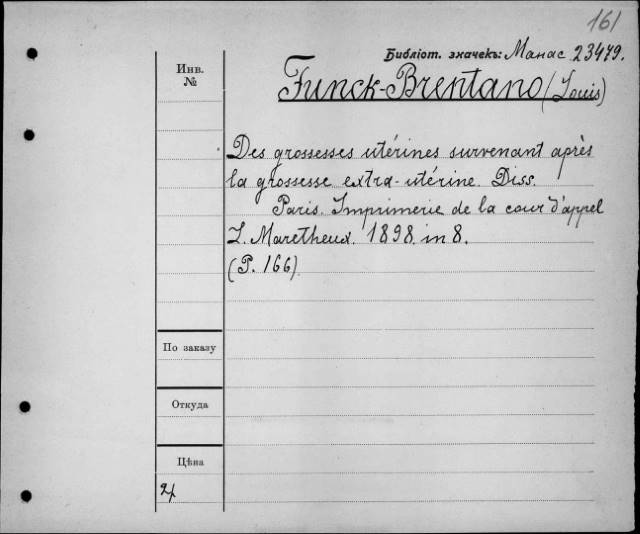 161
Библіот. значекъ: Манас 23479.
Инв.
№
Funck-Brentano (Louis)
Des grossesses utérines survenant après
la grossesse extra-utérine. Diss.
Paris. Imprimerie de la cour d'appel
L. Maretheux. 1898. in 8.
(P. 166)
По заказу
Откуда
Цѣна